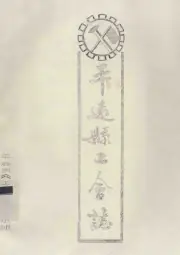 平遠縣工會誌